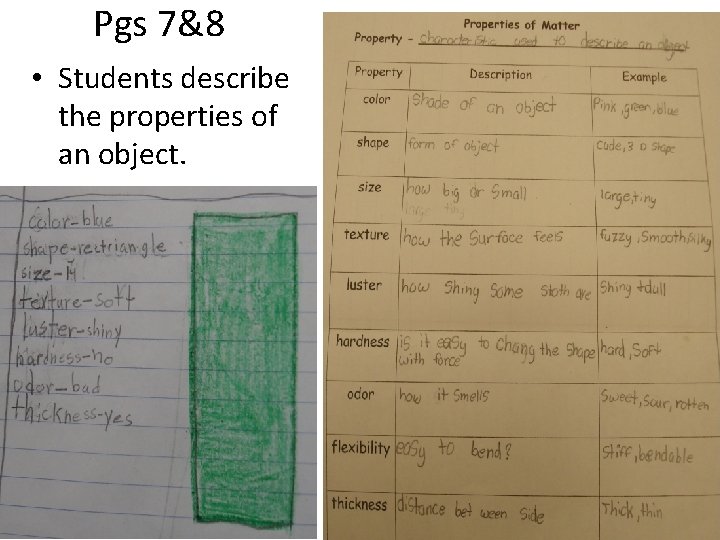 Pgs 7&8
• Students describe
the properties of
an object.
color-blue
shape-rectriangle
size-M
texture-soft
luster-shiny
hardness-no
odor-bad
thickness-yes
Properties of Matter
Property - characteristic used to describe an object
Property Description Example
color Shade of an object Pink, green, blue
shape form of object Cude, 3 D Shape
size how big or Small large, tiny
large tiny
texture how the Surface feels fuzzy, Smooth, silky
luster how Shing Some are Shing + dull
hardness is it easy to Chang the Shape hard, Soft
with force
odor how it Smells Sweet, Sour, rotten
flexibility easy to bend? Stiff, bendable
thickness distance bet ween side Thick, thin